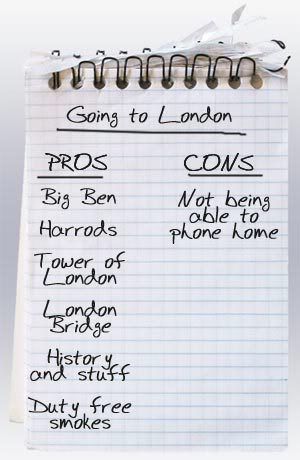 Going to London
PROS
Big Ben
Harrods
Tower of
London
London
Bridge
History
and stuff
Duty free
smokes
CONS
Not being
able to
phone home